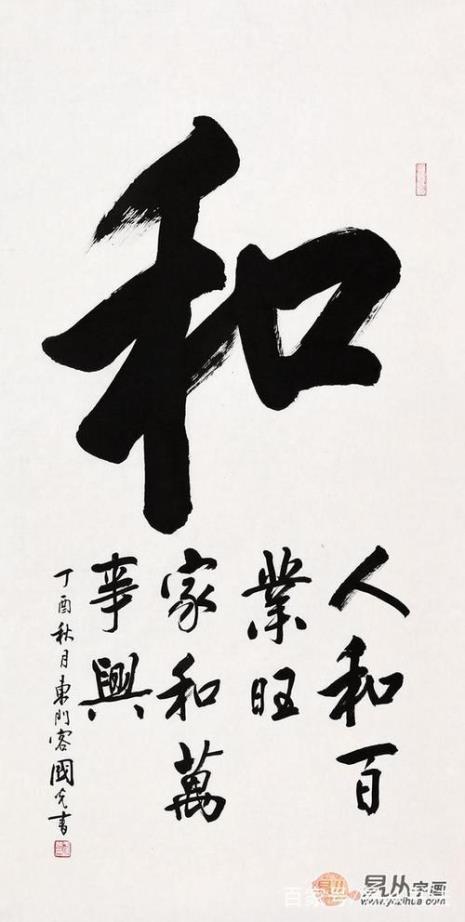 和
人和百
業旺
家和萬
事興
丁酉秋月東門客國光書
易从字画
www.yizihua.com
百家号